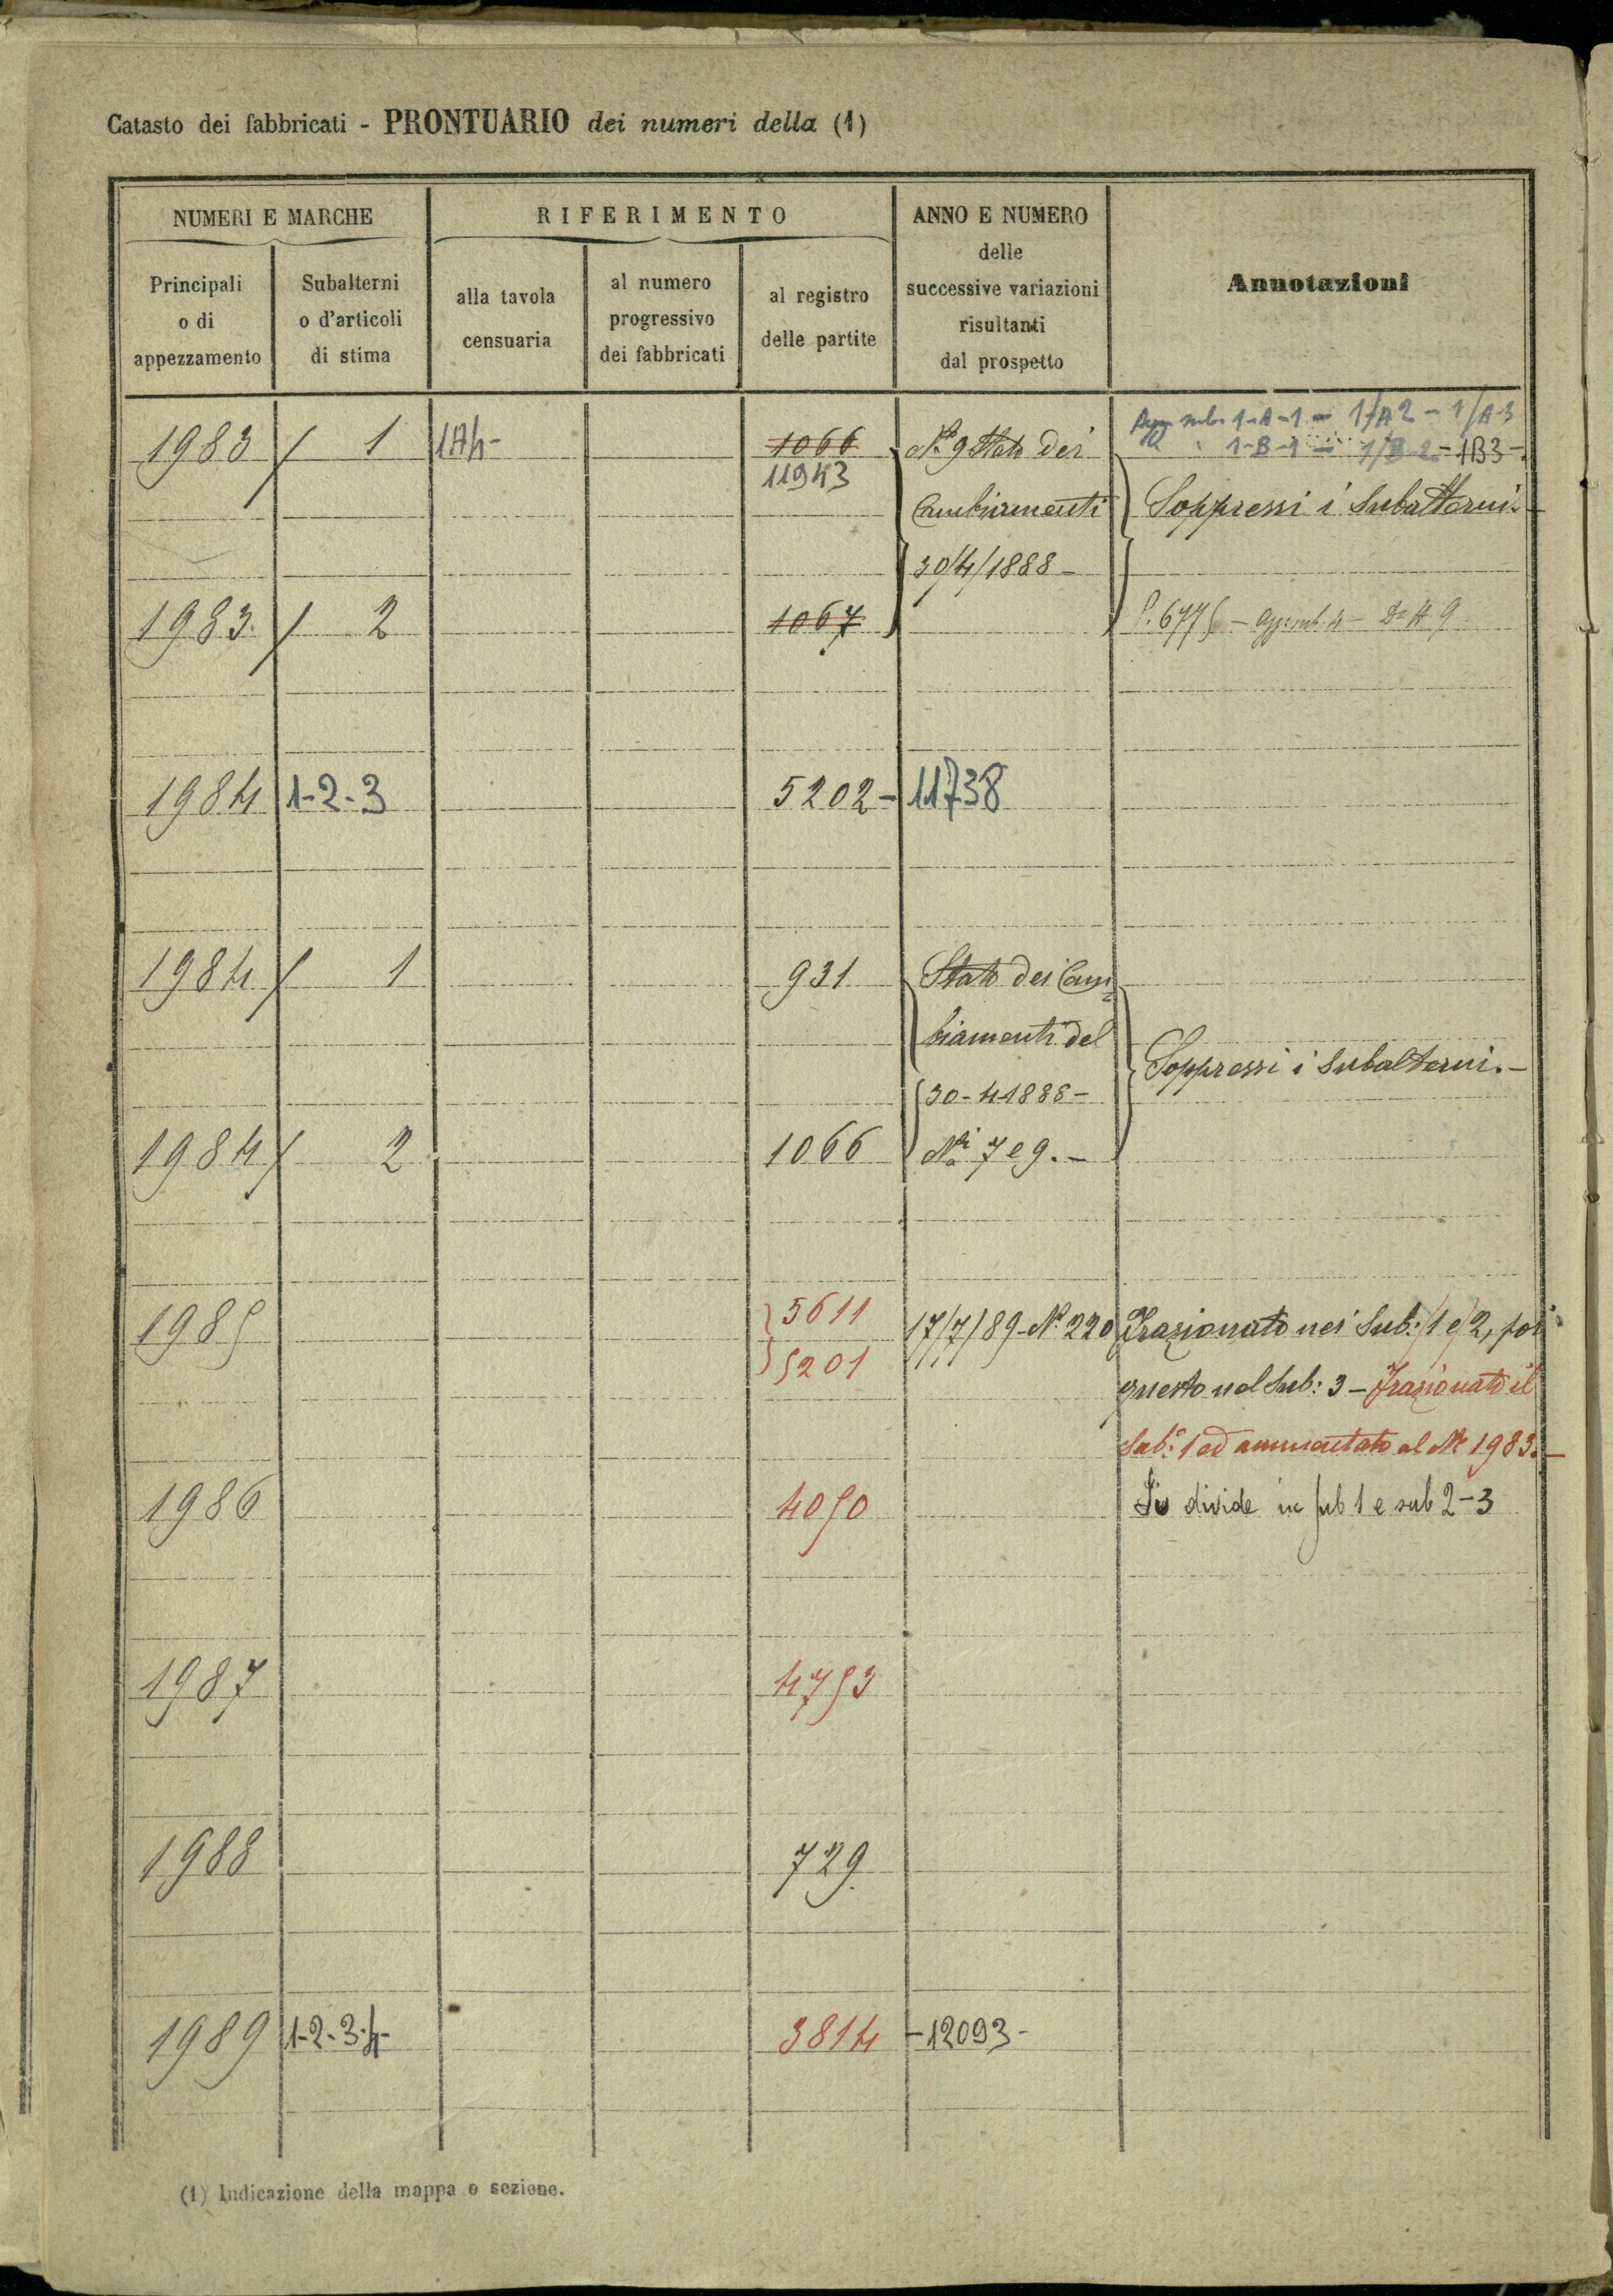 Catasto dei fabbricati - PRONTUARIO dei numeri della (1)
NUMERI E MARCHE
RIFERIMENTO
ANNO E NUMERO
delle
successive variazioni
risultanti
dal prospetto
Annotazioni
Principali
o di
appezzamento
Subalterni
o d'articoli
di stima
alla tavola
censuaria
al numero
progressivo
dei fabbricati
al registro
delle partite
1983 / 1 1A4- 1066 N.º 9 Stato dei sub. 1-A-1 - 1/A2 - 1/A3
11943 1-B-1 - 1/B2 - 1B3 -
Cambiamenti Soppressi i Subalterni. -
30/4/1888 -
1983. / 2 1067 P. 677
1984 1-2-3 5202 - 11738
1984 / 1 931 Stato dei Cam=
biamenti del
Soppressi i Subalterni. -
30-4-1888 -
1984 / 2 1066 Nⁱ 7 e 9. -
1985 5611 17/7/89 - Nº 220 Frazionato nei Sub: /1 e /2, poi
5201
questo nel Sub: 3 - Frazionato il
Sub: 1 ed aumentato al Nº 1983. -
1986 4050 Si divide in sub 1 e sub 2-3
1987 4753
1988 729.
1989 1-2-3-4- 3814 - 12093 -
(1) Indicazione della mappa o sezione.